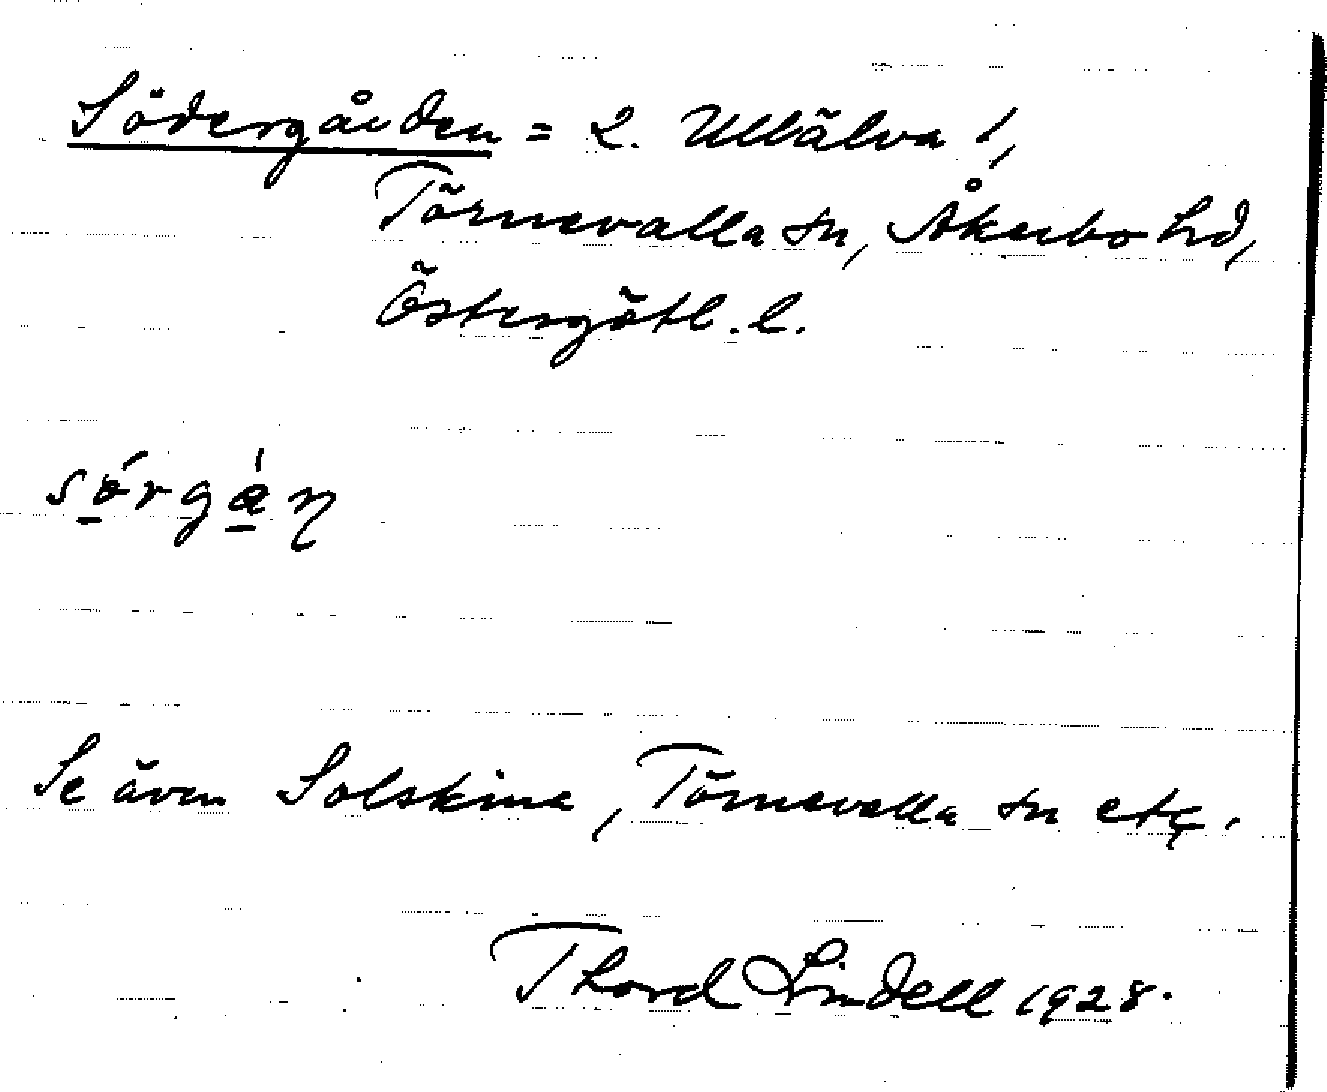 Södergården = L. Ullälva 1,
Törnevalla sn, Åkerbo hd,
Östergötl. l.
Se även Solskina, Törnevalla sn etc.
Thord Lindell 1928.